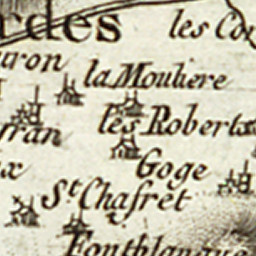 rdes
les Cou
uron
la Mouliere
fran
les Roberts
Goge
x
St. Chafret
Fontblanque